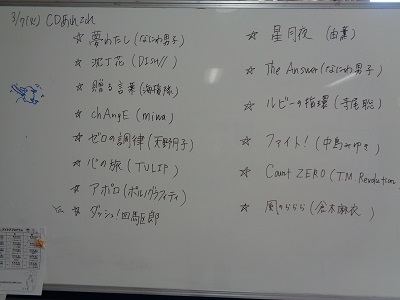 3/7(火) CDあれこれ
☆ 夢わたし(なにわ男子)
☆ 泥丁花(DISH//)
☆ 贈る言葉(海援隊)
☆ chAngE(miwa)
☆ ゼロの調律(天野月子)
☆ 心の旅(TULIP)
☆ アポロ(ポルノグラフィティ)
☆ ダッシュ!四駆郎
☆ 星月夜(由薫)
☆ The Answer(なにわ男子)
☆ ルビーの指環(寺尾聡)
☆ ファイト!(中島みゆき)
☆ Count ZERO(TM Revolution)
☆ 風のららら(倉木麻衣)